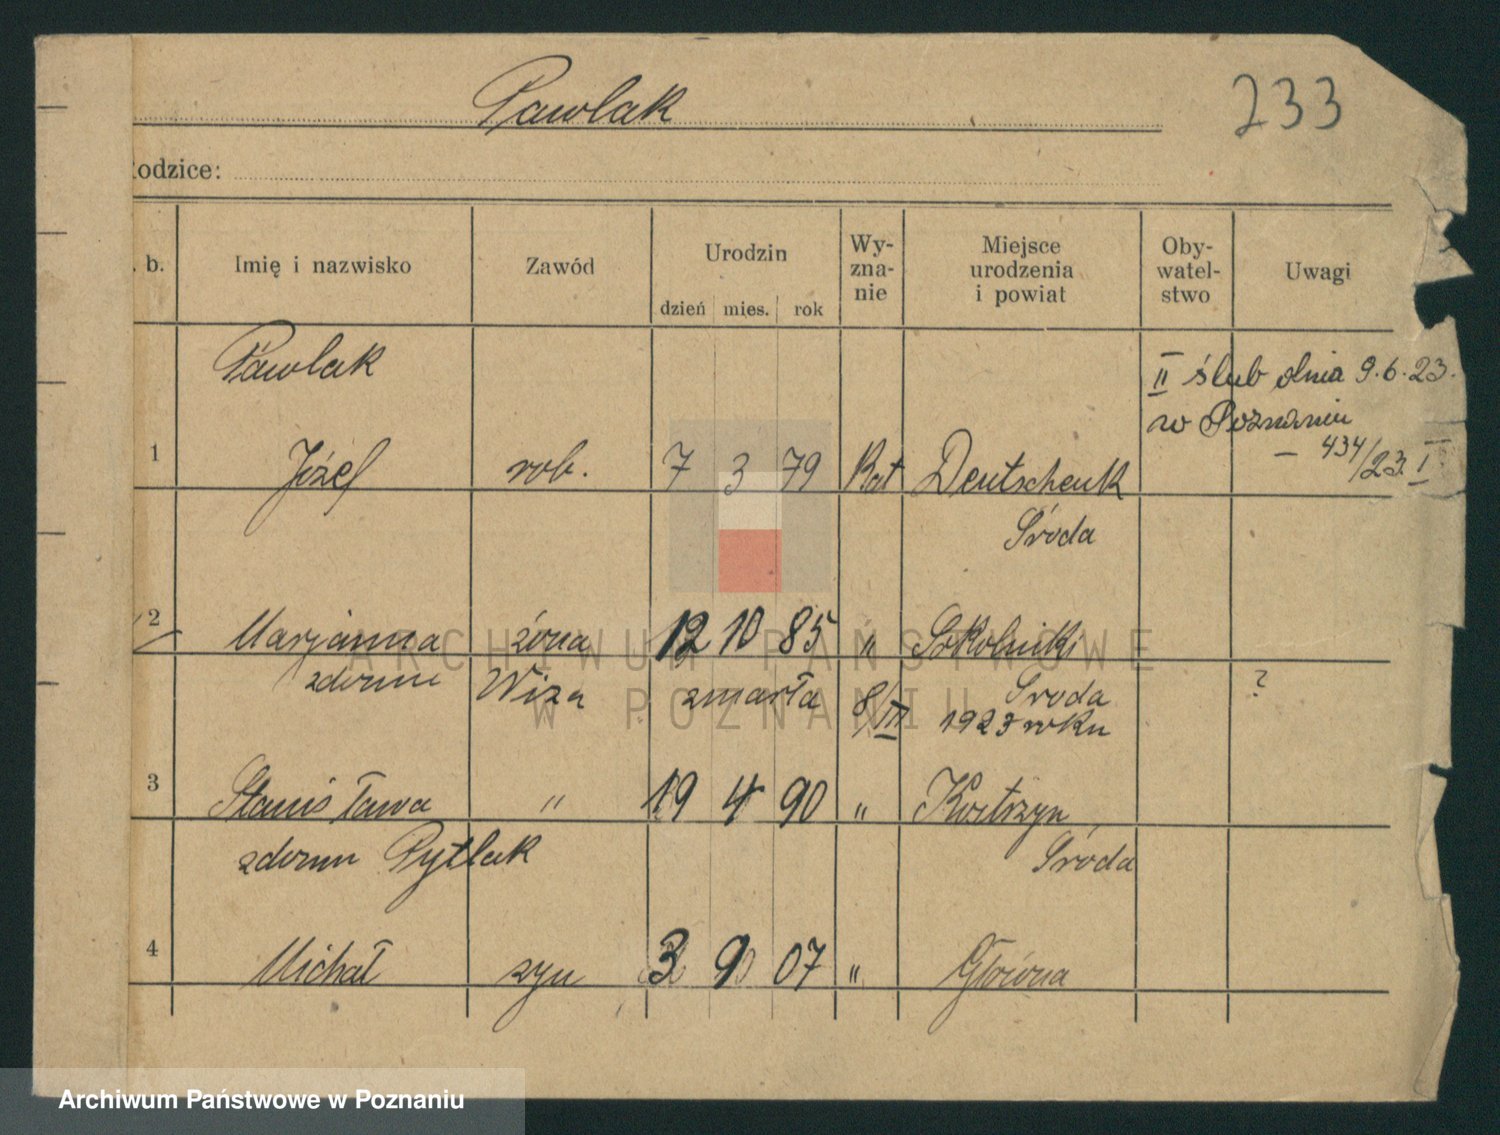 Pawlak
233
odzice:
. b.
Imię i nazwisko
Zawód
Urodzin
dzień mies. rok
Wy-
zna-
nie
Miejsce
urodzenia
i powiat
Oby-
watel-
stwo
Uwagi
Pawlak
II ślub dnia 9.6.23.
w Poznaniu
– 434/23. I
1 Józef rob. 7 3 79 Kat
Środa
2 Marjanna żona 12 10 85 „ Sokolniki
Wiza zmarła 8/III
Środa
1923 roku
?
3 Stanisława „ 19 4 90 „ Kostrzyn
Pytlak Środa
4 Michał syn 3 9 07 „ Główna
ARCHIWUM PAŃSTWOWE
W POZNANIU
Archiwum Państwowe w Poznaniu